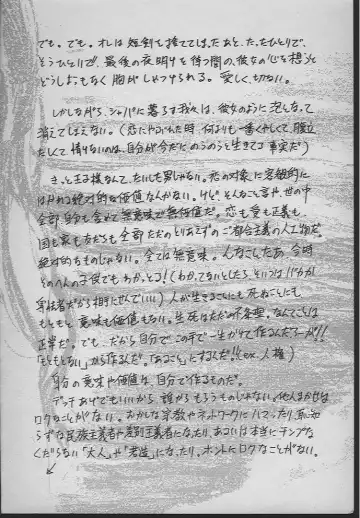 でも。でも。オレは短剣を捨ててしまったあと、たったひとりで、
そうひとりで、最後の夜明けを待つ間の、彼女の心を想うと
どうしようもなく胸がしめつけられる。愛しく、切ない。
しかしながら、シャバに暮らす我々は、彼女のように泡となって
消えてしまえない。(恋にやぶれた時、何よりも一番くやしくて、腹立
たしくて情けないのは、自分が今だにのうのうと生きてる事実だ)
きっと王子様なんて、たいした男じゃない。恋の対象に客観的に
はかれる絶対的な価値なんかない。けど、そんなこと言や、世の中
全部、自分も含めて無意味で無価値だ。恋も愛も正義も、
国も家も友だちも全部ただのとりあえずのご都合主義の人工物だ。
絶対的なものじゃない。全ては無意味。んなこたあ、今時
そのへんの子供でもわかってる!(わかってないとしたら、そいつは
だから相手にせんでいい)人が生きることにも死ぬことにも
もともと、意味も価値もない。生死はただの不条理。なんてことは
正常だ。でも、だから自分で、この手で一生かけて作るんだろーが!!
「もともとない」から作るんだ。「あること」にするんだ!!(ex.人権)
自分の意味や価値は、自分で作るものだ。
デッチあげでもいいから。誰からもらうものじゃない。他人まかせは
ロクなことがない。おかしな宗教やネットワークにハマったり、恥知
らずな民族主義者や差別主義者になったり、あるいは本当にチンプな
くだらない「大人」や「若造」になったり、ホントにロクなことがない。